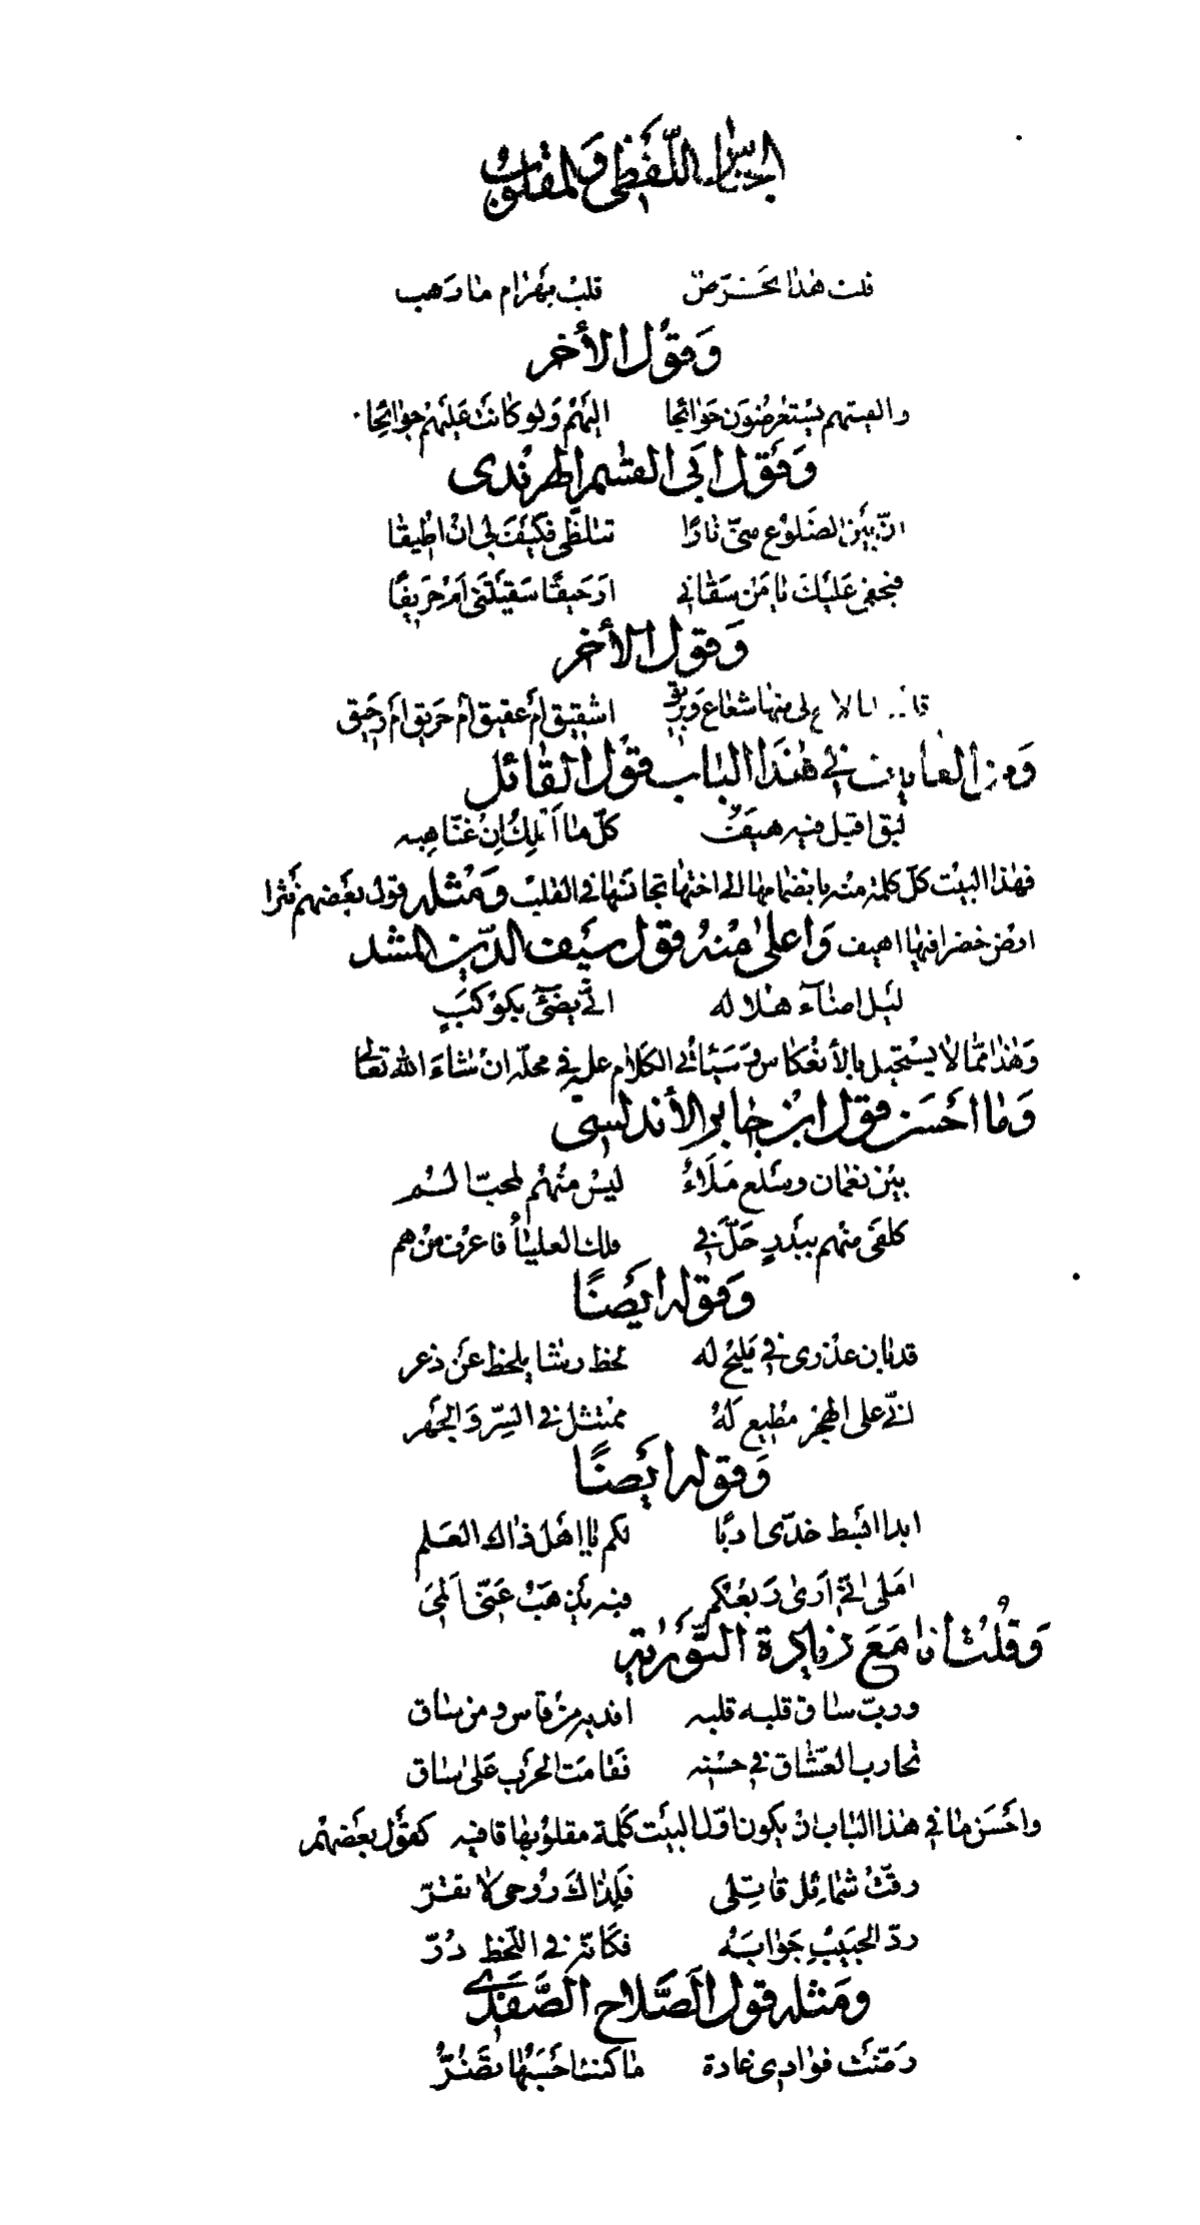 الجناس اللفظي والمقلوب
قلت هذا قلب بهرام ما رهب
وقول الآخر
والفيتهم يستعرضون حوائجا اليهم ولو كانت عليهم جوائحا
وقول ابي القسم الهرندى
ان بين الضلوع منى نارا تتلظى فكيف لي ان اطيقا
فبحقى عليك يا من سقاني ارحيقا سقيتنى ام حريقا
وقول الآخر
لى منها شعاع وبريق اشقيق ام عقيق ام حريق ام رحيق
ومن الغايات في هذا الباب قول القائل
لبق اقبل فيه هيف كل ما املك ان غنا هبه
فهذا البيت كل كلمة منه بانضمامها الى اختها تجانسها في القلب ومثله قول بعضهم نثرا
ارض خضرا فيها اهيف واعلى منه قول سيف الدين المشد
ليل اضاء هلاله انى يضئ بكوكب
وهذا مما لا يستحيل بالأنعكاس وسيأتي الكلام عليه في محله ان شاء الله تعالى
وما احسن قول ابن جابر الأندلسي
بين نعمان وسلع ملاء ليس منهم لمحب السم
كلفى منهم ببدر حل في فلك العلياء فاعرف من هم
وقوله ايضا
قد بان عذرى في مليح له لحظ رشا يلحظ عن ذعر
انى على الهجر مطيع له ممتثل في السر والجهر
وقوله ايضا
ابدا ابسط خدى ادبا لكم يا اهل ذاك العلم
املى انى ارى ربعكم فبه يذهب عنى المى
وقلت انا مع زيادة التورية
ورب ساق قلبه قلبه افديه من قاس ومن ساق
تحارب العشاق في حسنه فقامت الحرب على ساق
واحسن ما في هذا الباب ان يكون اول البيت كلمة مقلوبها قافيه كقول بعضهم
رقت شمائل قاتلى فلذاك روحى لا تقر
رد الحبيب جوابه فكانه في اللحظ در
ومثله قول الصلاح الصفدى
رضت فوادى غادة ما كنت احسبها تضر